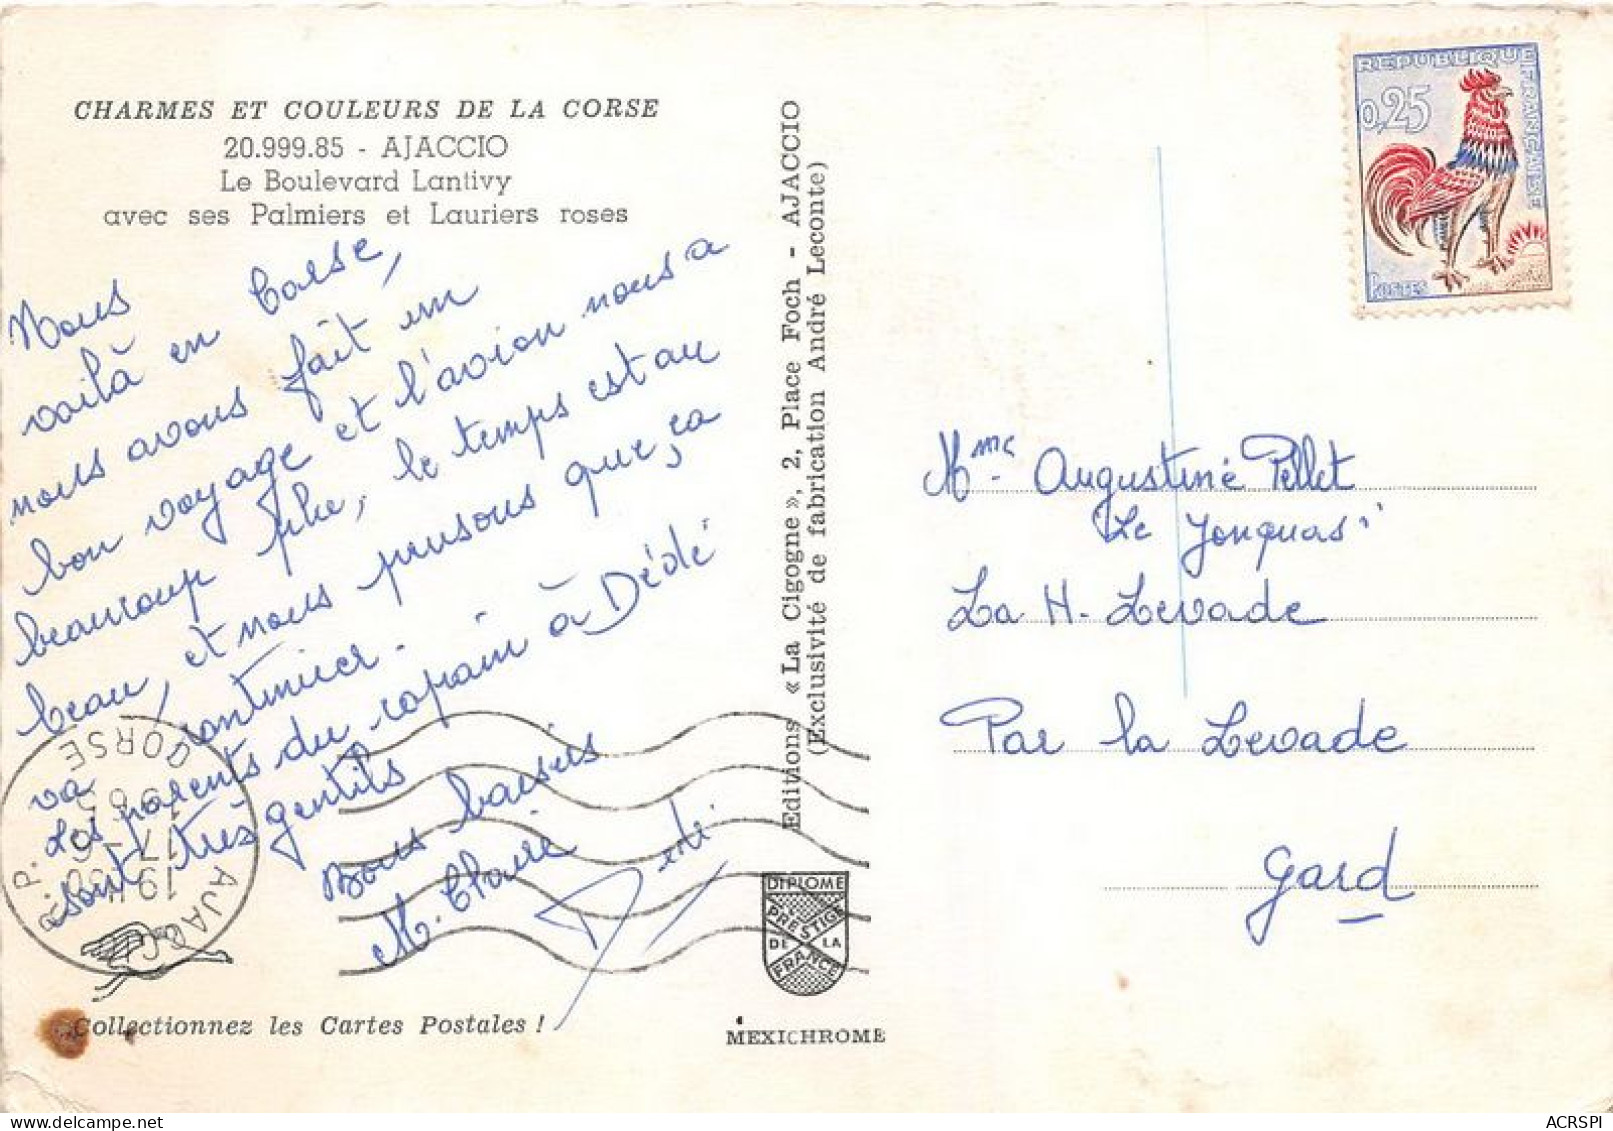 CHARMES ET COULEURS DE LA CORSE
20.999.85 - AJACCIO
Le Boulevard Lantivy
avec ses Palmiers et Lauriers roses
Nous
voilà en Corse,
nous avons fait un
bon voyage et l'avion nous a
beaucoup plu, le temps est au
beau, et nous pensons que ça
va continuer.
Les parents du copain à Dédé
sont très gentils
Bons baisers
M. Claire
AJACCIO R.P.
19H30
17-6
1965
CORSE
Collectionnez les Cartes Postales !
Editions « La Cigogne », 2, Place Foch - AJACCIO
(Exclusivité de fabrication André Leconte)
DIPLOME
PRESTIGE
DE LA
FRANCE
MEXICHROME
REPUBLIQUE FRANÇAISE
0,25
POSTES
Mme Augustine Pellet
"Le Jonquas"
La H. Levade
Par la Levade
Gard
ACRSPI